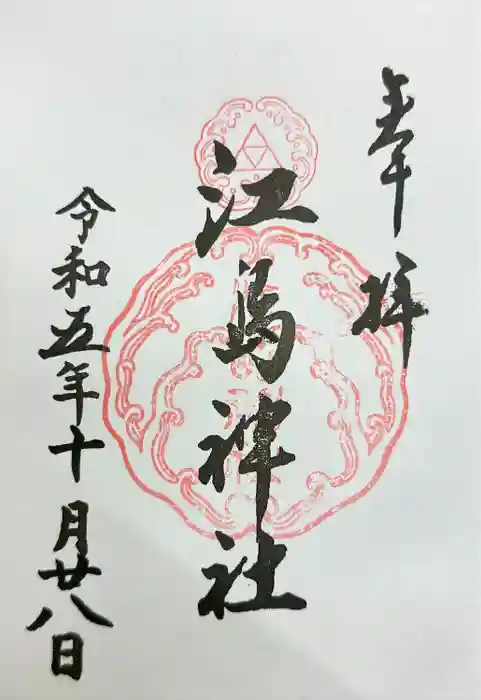 奉拝
江島神社
令和五年十月廿八日